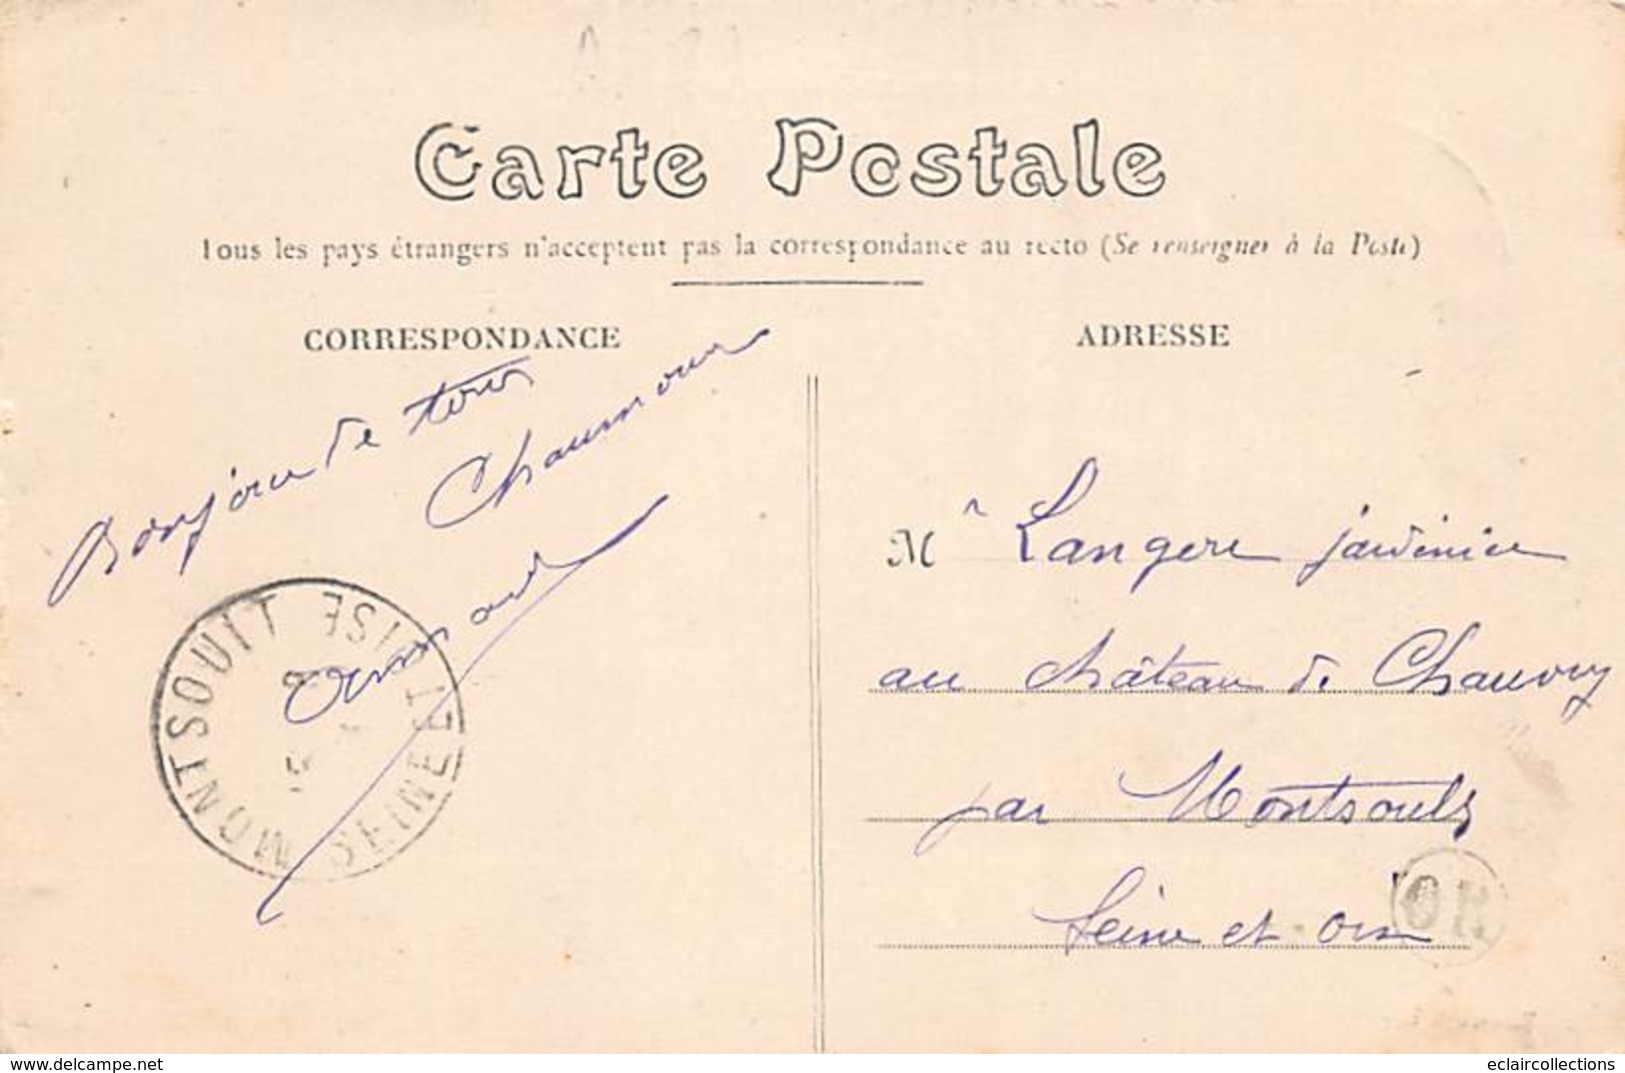 Carte Postale
Tous les pays étrangers n'acceptent pas la correspondance au recto (Se renseigner à la Poste)
CORRESPONDANCE
ADRESSE
Bonjour de tous
MONTSOULT SEINE ET OISE
Mr Langere jardinier
au château de Chauvry
par Montsoult
Seine et Oise
OR
delcampe.net
eclaircollections